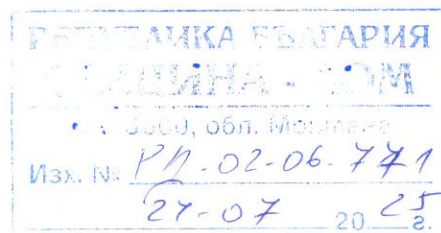 РЕПУБЛИКА БЪЛГАРИЯ
ОБЩИНА - ЛОМ
обл. Монтана
Изх. № РД-02-06-771
24-07 2025 г.